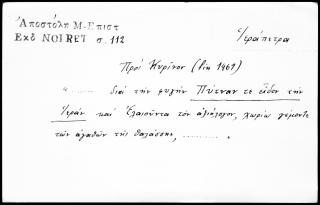 Ἀποστόλη Μ-Επιστ
Εκδ NOIRET σ. 112
Ἱεράπετρα
Πρὸς Κυρῖνον (fin 1469)
« ......... διὰ τὴν φυγὴν Πύτναν τε εἶδον τὴν
Ἱερὰν καὶ Ἐλαιοῦντα τὸν ἀξιόλογον, χωρία γέμοντα
τῶν ἀγαθῶν τῆς θαλάσσης, ......... .